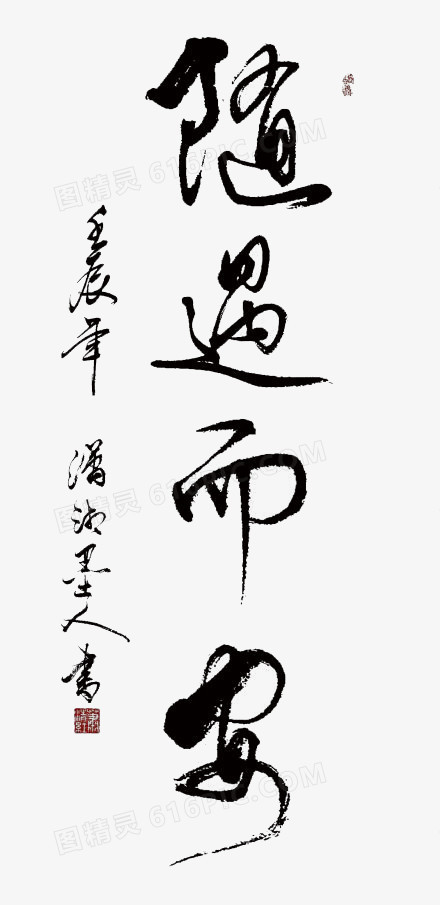 随遇而安
壬辰年 潇湘墨人书
图精灵 616PIC.COM
图精灵 616PIC.COM
图精灵 616PIC.COM